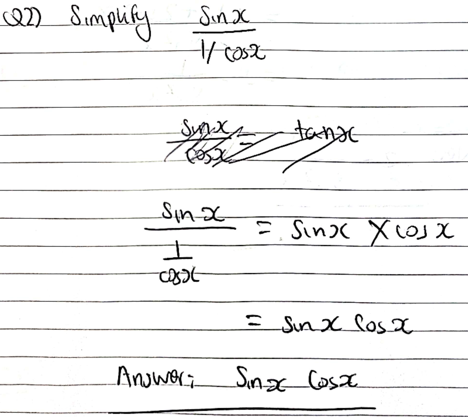 Q2) Simplify sinx / 1/ cosx
sinx / cosx = tanx
sinx / 1/cosx = sinx × cosx
= sinx cosx
Answer: sinx cosx